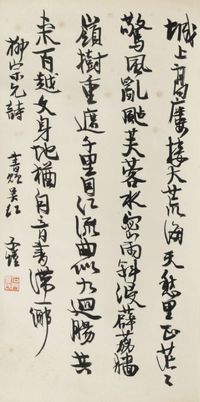 城上高樓接大荒海天愁思正茫〻
驚風亂颭芙蓉水密雨斜侵薜荔牆
嶺樹重遮千里目江流曲似九迴腸共
來百越文身地猶自音書滯一鄉
柳宗元詩
子愷